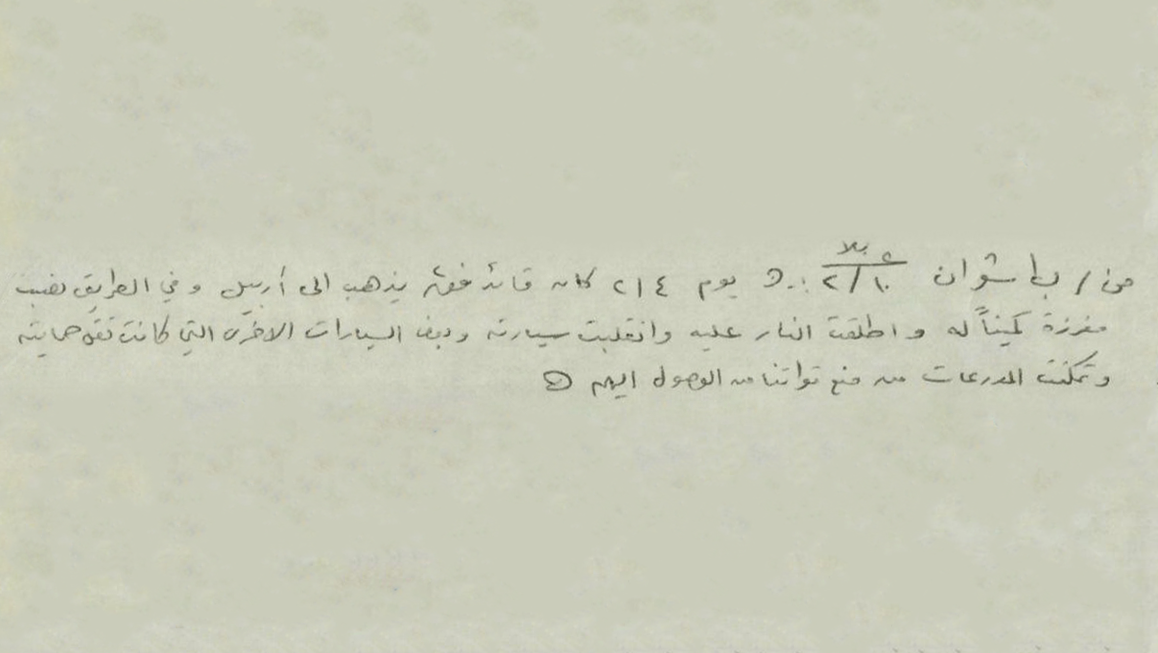 برلا ٤
من / باشوان ٢/١٠ : يوم ٢١٤ كان قائد فرقة يذهب الى أربيل و في الطريق نصبت
مفرزة كميناً له و اطلقت النار عليه وانقلبت سيارته وبعض السيارات الاخرى التي كانت تقوم بحمايته
وتمكنت المدرعات من منع قواتنا من الوصول اليهم